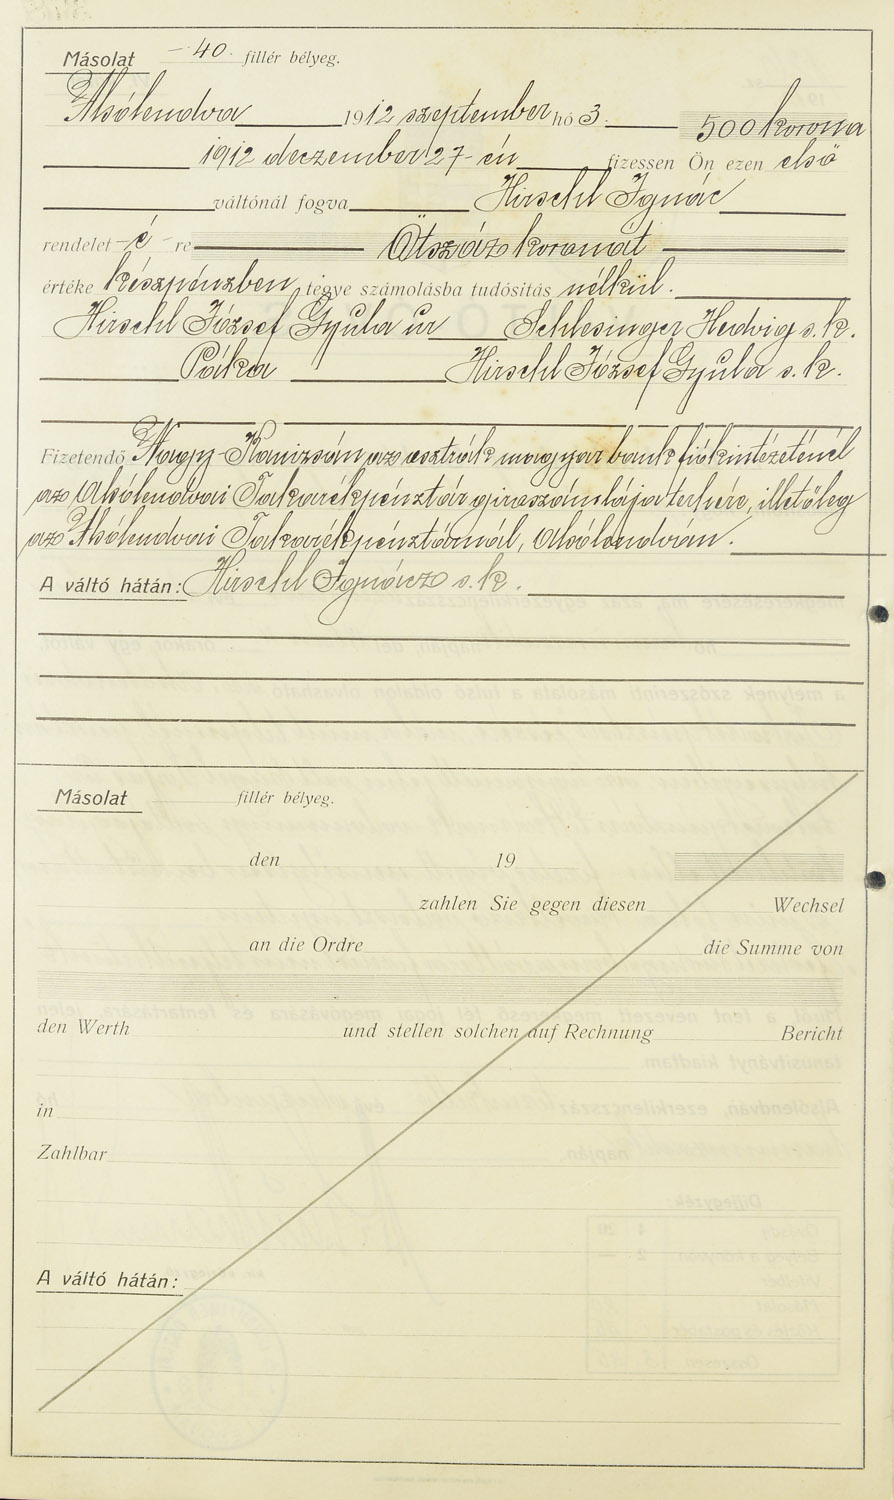 Másolat -40. fillér bélyeg.
Alsólendva 1912 szeptember hó 3. 500 korona
1912 deczember 27-én fizessen Ön ezen első
váltónál fogva Hirschl Ignác
rendelet -é- re Ötszáz koronát
értéke készpénzben tegye számolásba tudósítás nélkül.
Hirschl József Gyula úr Schlesinger Hedvig s. k.
Páka Hirschl József Gyula s. k.
Fizetendő Nagy-Kanizsán az osztrák magyar bank fiókintézeténél
az Alsólendvai Takarékpénztár giroszámlája terhére, illetőleg
az Alsólendvai Takarékpénztárnál, Alsólendván.
A váltó hátán: Hirschl Ignácz s. k.
Másolat fillér bélyeg.
den 19
zahlen Sie gegen diesen Wechsel
an die Ordre die Summe von
den Werth und stellen solchen auf Rechnung Bericht
in
Zahlbar
A váltó hátán: